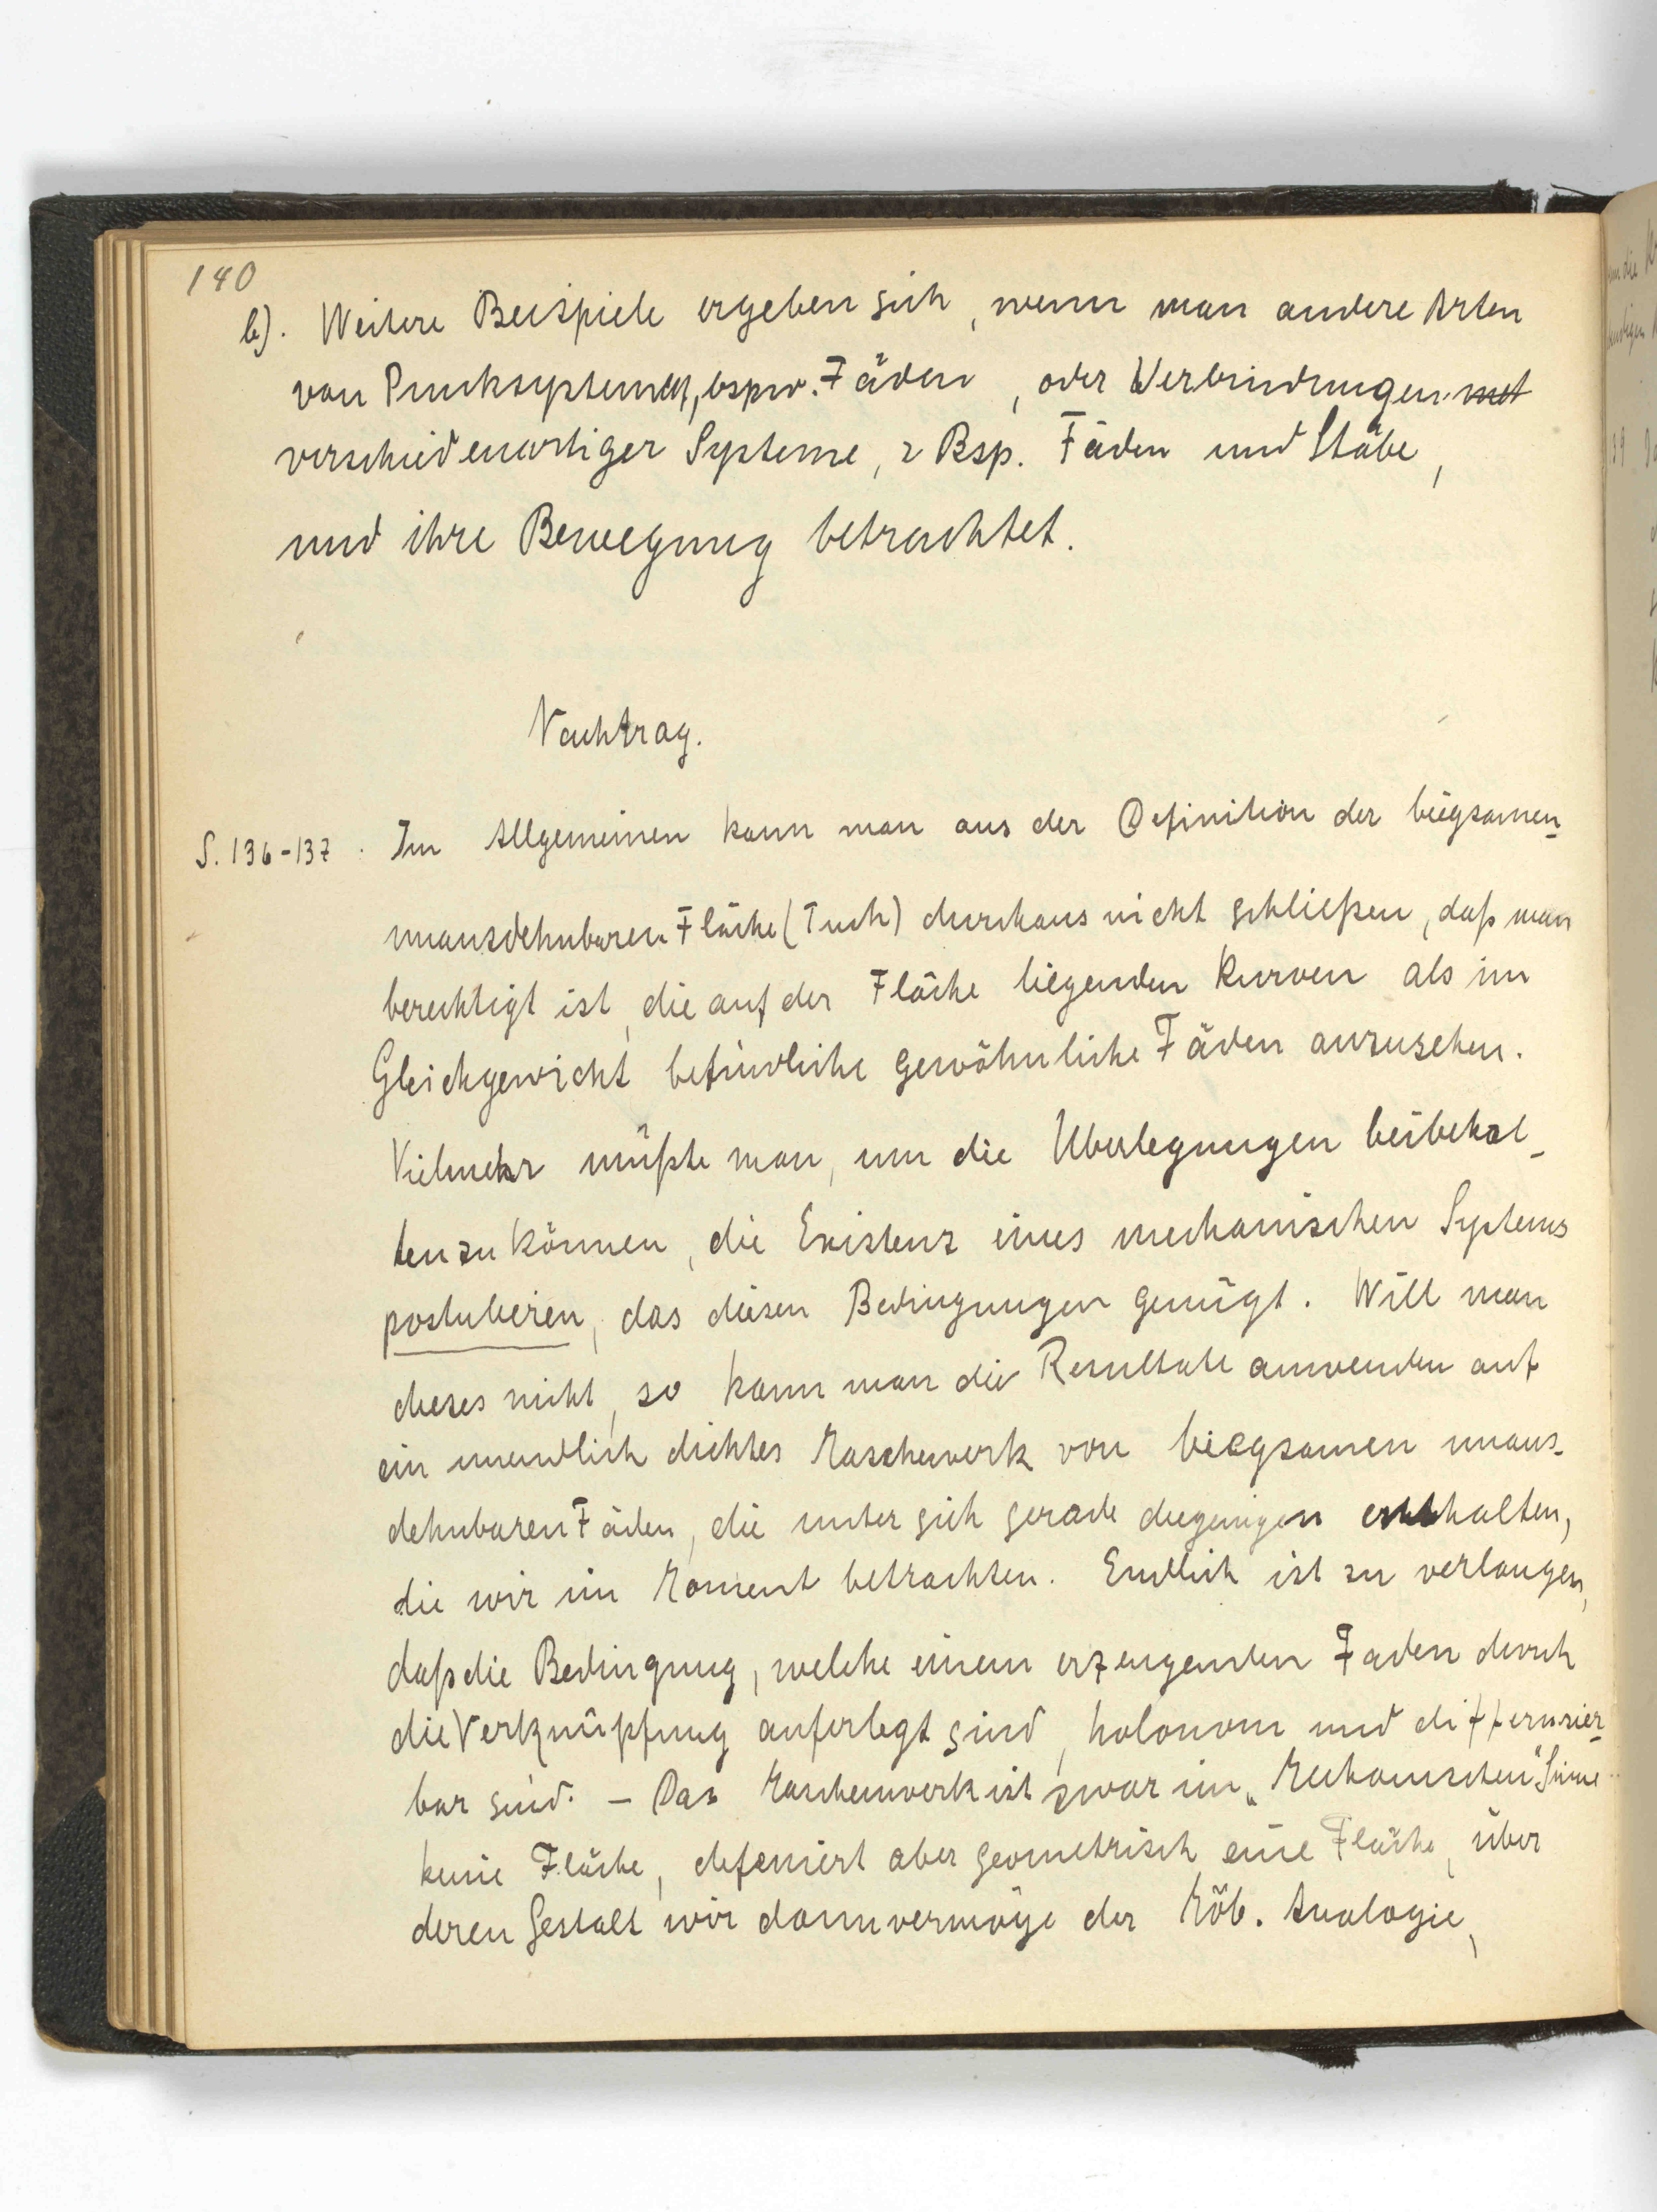 140
b). Weitere Beispiele ergeben sich, wenn man andere Arten
von Punksystemen, bspw. Fäden, oder Verbindungen met
verschiedenartiger Systeme, z Bsp. Fäden und Stäbe,
und ihre Bewegung betrachtet.
Nachtrag.
S. 136-137. Im Allgemeinen kann man aus der Definition der biegsamen-
unausdehnbaren Fläche (Tuch) durchaus nicht schließen, daß man
berechtigt ist, die auf der Fläche liegenden Kurven als im
Gleichgewicht befindliche gewöhnliche Fäden anzusehen.
Vielmehr müßte man, um die Überlegungen beibehal-
ten zu können, die Existenz eines mechanischen Systems
postulieren, das diesen Bedingungen genügt. Will man
dieses nicht, so kann man die Resultate anwenden auf
ein unendlich dichtes Maschewerk von biegsamen unaus-
dehnbaren Fäden, die unter sich gerade diejenigen enthalten,
die wir im Moment betrachten. Endlich ist zu verlangen,
daß die Bedingung, welche einem erzeugenden Faden durch
die Verknüpfung auferlegt sind, holonom und differenzier-
bar sind. - Das Maschenwerk ist zwar im „Mechanischen" Sinne
keine Fläche, definiert aber geometrisch eine Fläche, über
deren Gestalt wir dann vermöge der Möb. Analogie,